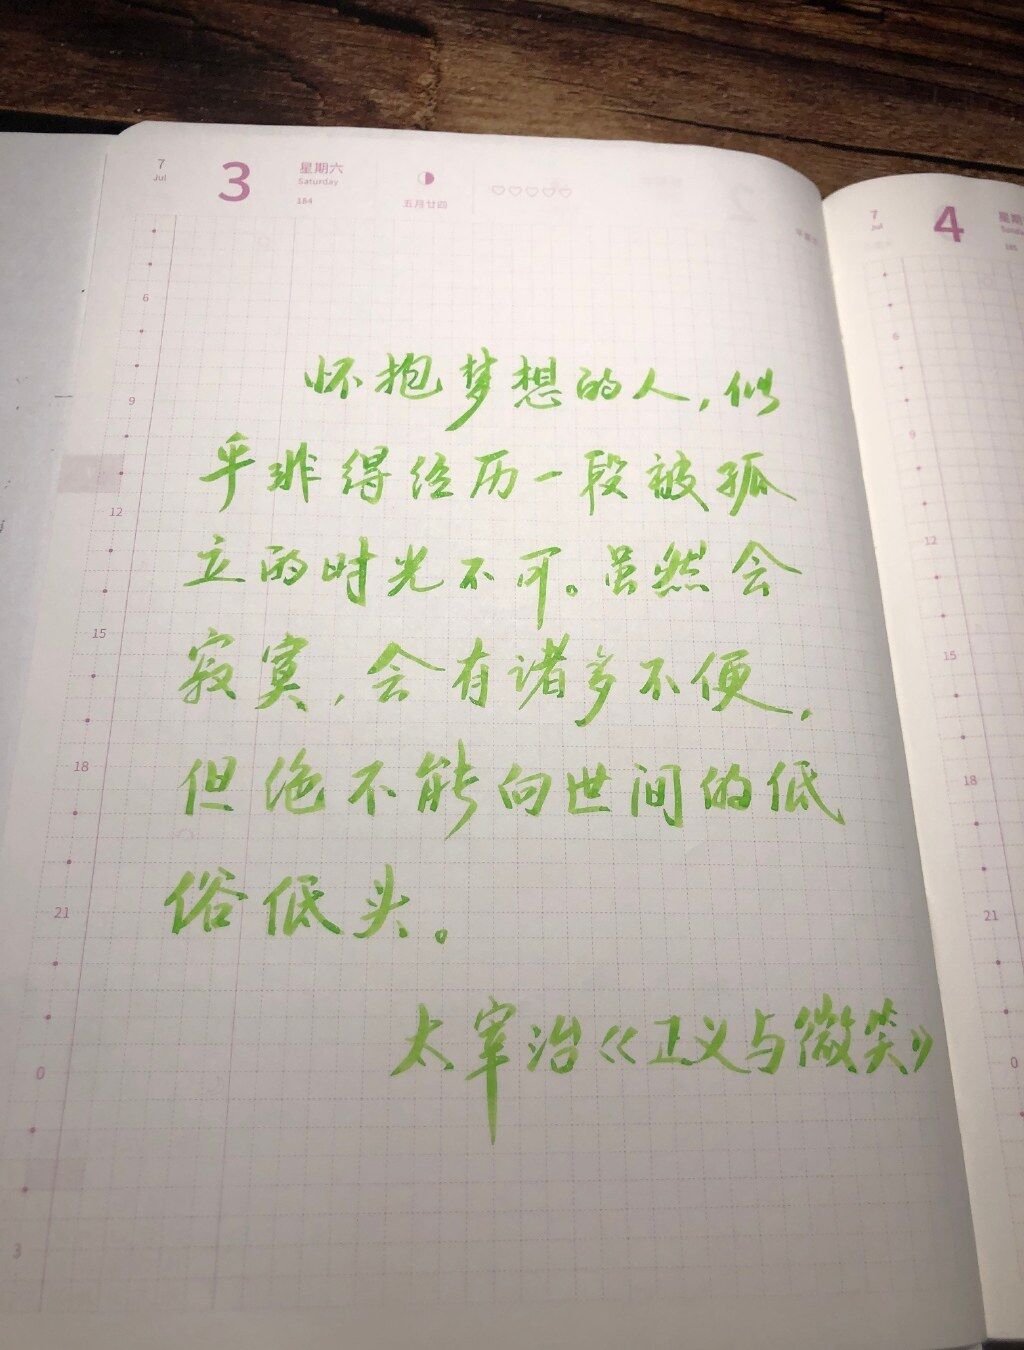 7
Jul
3
星期六
Saturday
184
五月廿四
6
9
12
15
18
21
0
3
怀抱梦想的人，似
乎非得经历一段被孤
立的时光不可。虽然会
寂寞，会有诸多不便，
但绝不能向世间的低
俗低头。
太宰治《正义与微笑》
7
Jul
4
星期
185
6
9
12
15
18
21
0